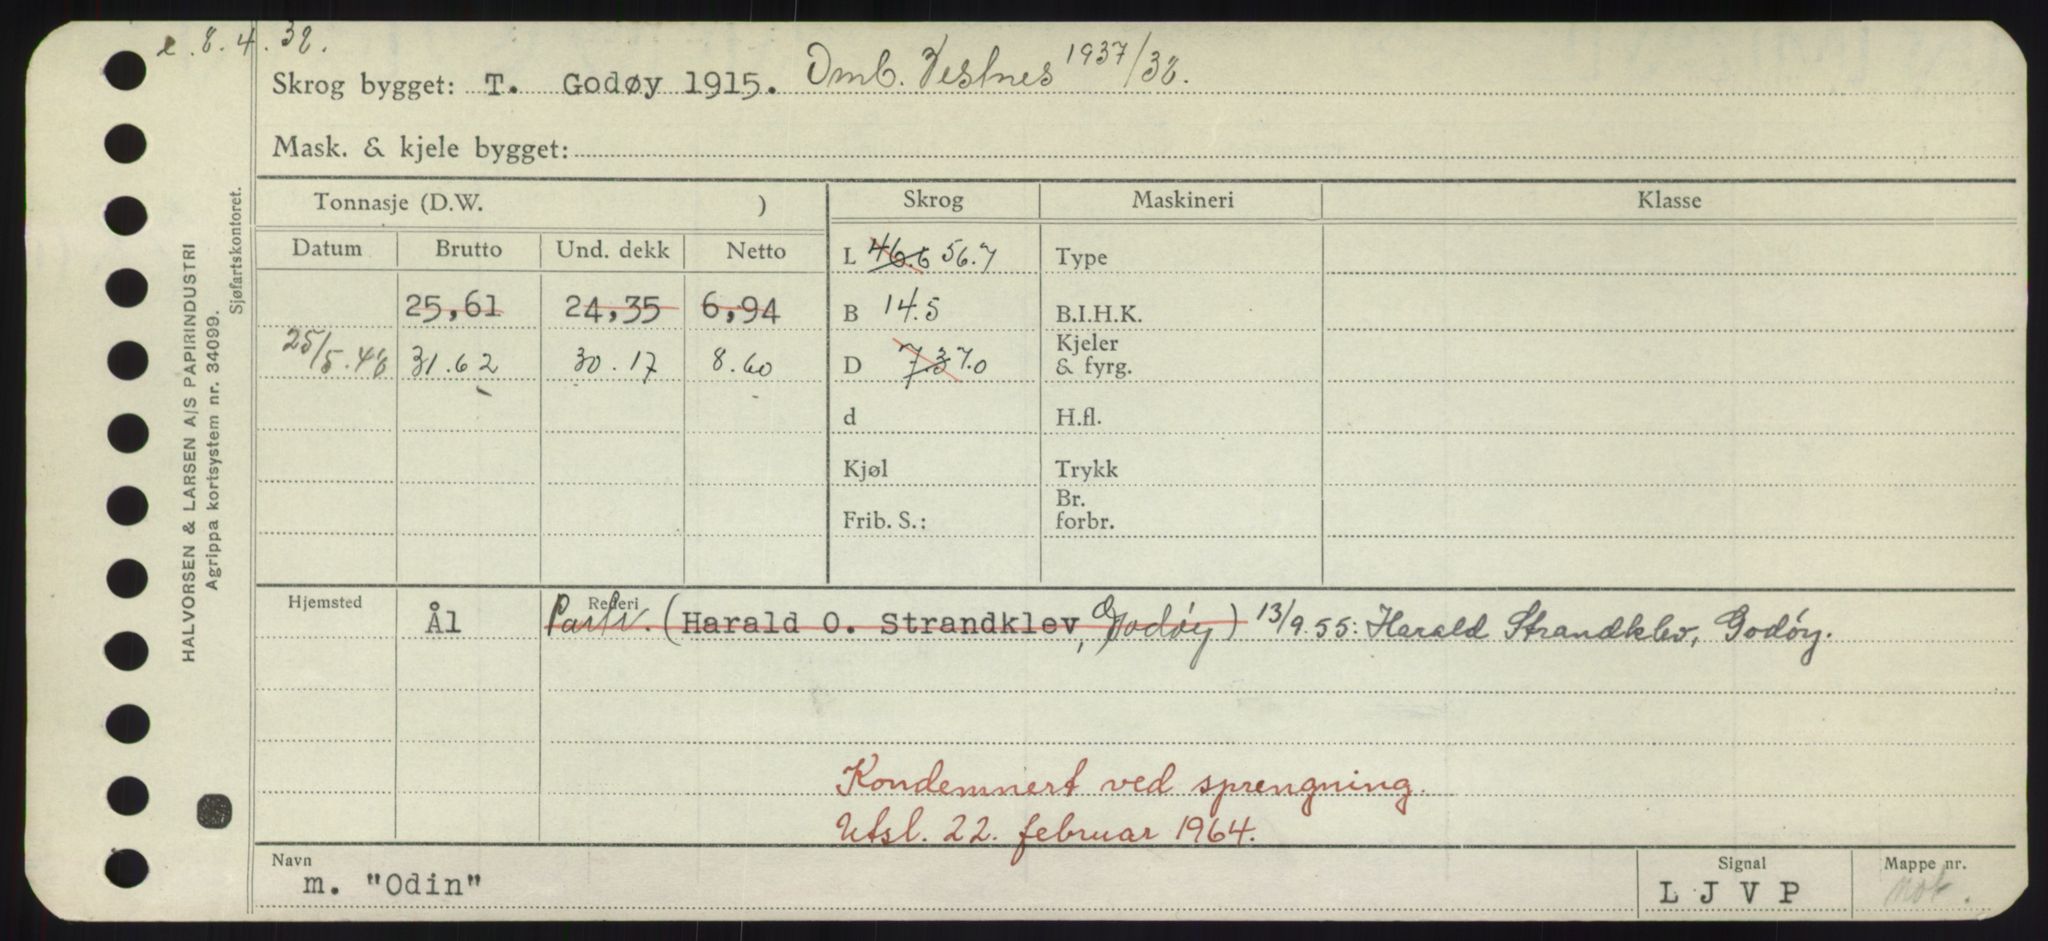 e. 8.4.38.
Skrog bygget: T. Godøy 1915. Omb. Vestnes 1937/38.
Mask. & kjele bygget:
HALVORSEN & LARSEN A/S PAPIRINDUSTRI
Agrippa kortsystem nr. 34099.
Sjøfartskontoret.
Tonnasje (D.W. ) Skrog Maskineri Klasse
Datum Brutto Und. dekk Netto
L 46.6 56.7 Type
25,61 24,35 6,94 B 14.5 B.I.H.K.
25/5.48 31.62 30.17 8.60 D 7.3 7.0 Kjeler & fyrg.
d H.fl.
Kjøl Trykk
Frib. S.: Br. forbr.
Hjemsted Rederi
Ål Partr. (Harald O. Strandklev, Godøy) 13/9.55: Harald Strandklev, Godøy.
Kondemnert ved sprengning.
Utsl. 22. februar 1964.
Navn Signal Mappe nr.
m. "Odin" LJVP mot.